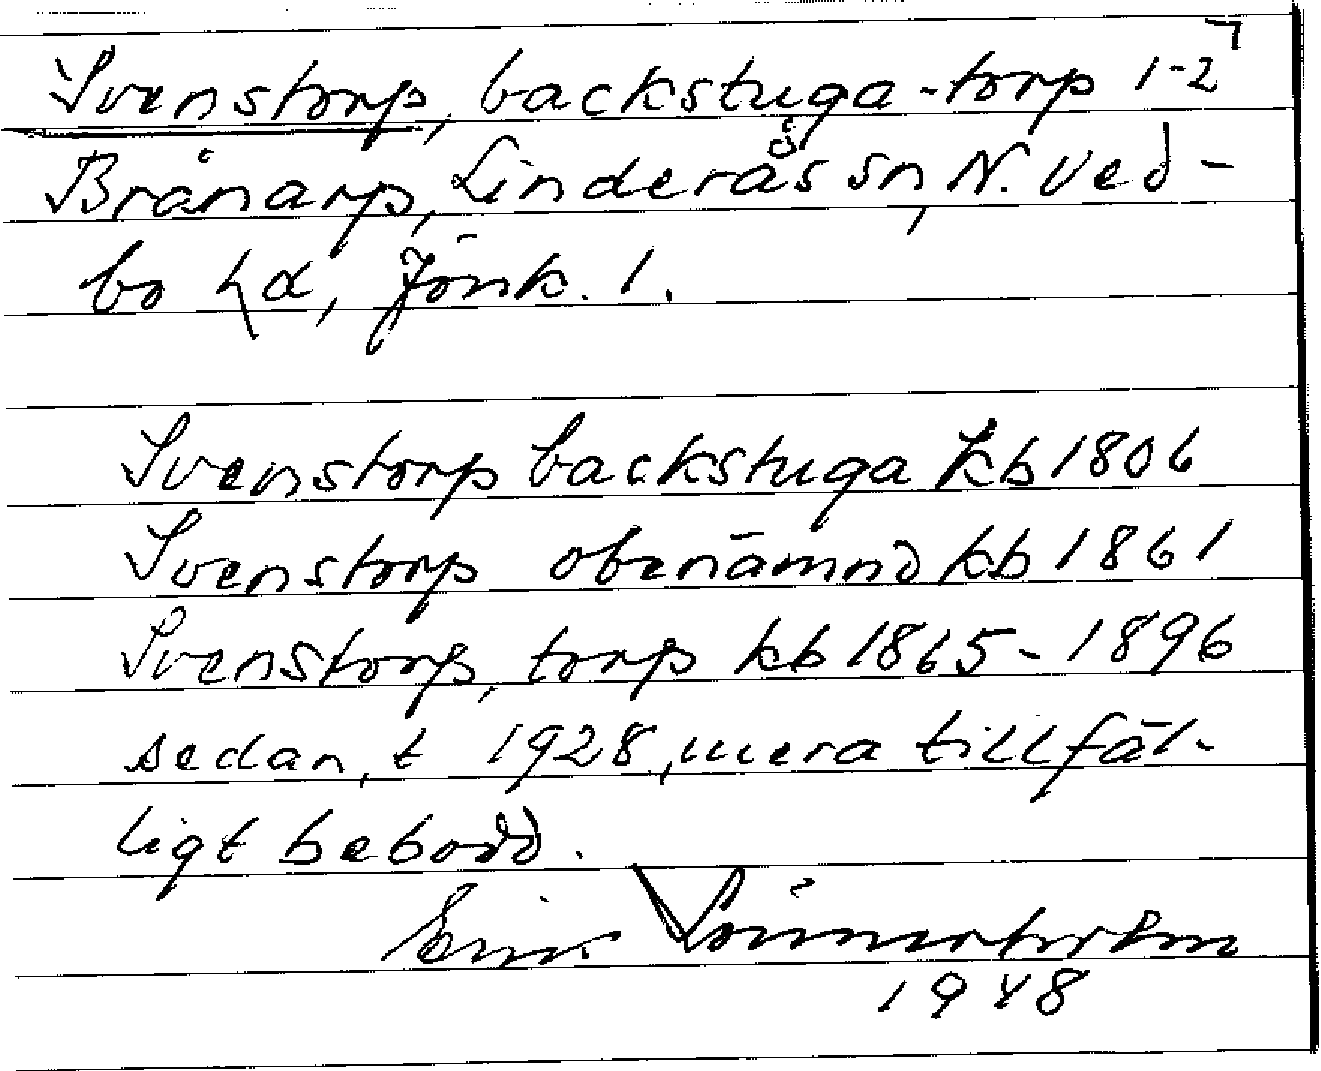 Svenstorp, backstuga-torp 1-2
Brånarp, Linderås sn, N. Ved-
bo hd, Jönk. l.
Svenstorp backstuga kb 1806
Svenstorp obenämnd kb 1861
Svenstorp, torp kb 1865-1896
sedan, t 1928, mera tillfäl-
ligt bebodd.
1948